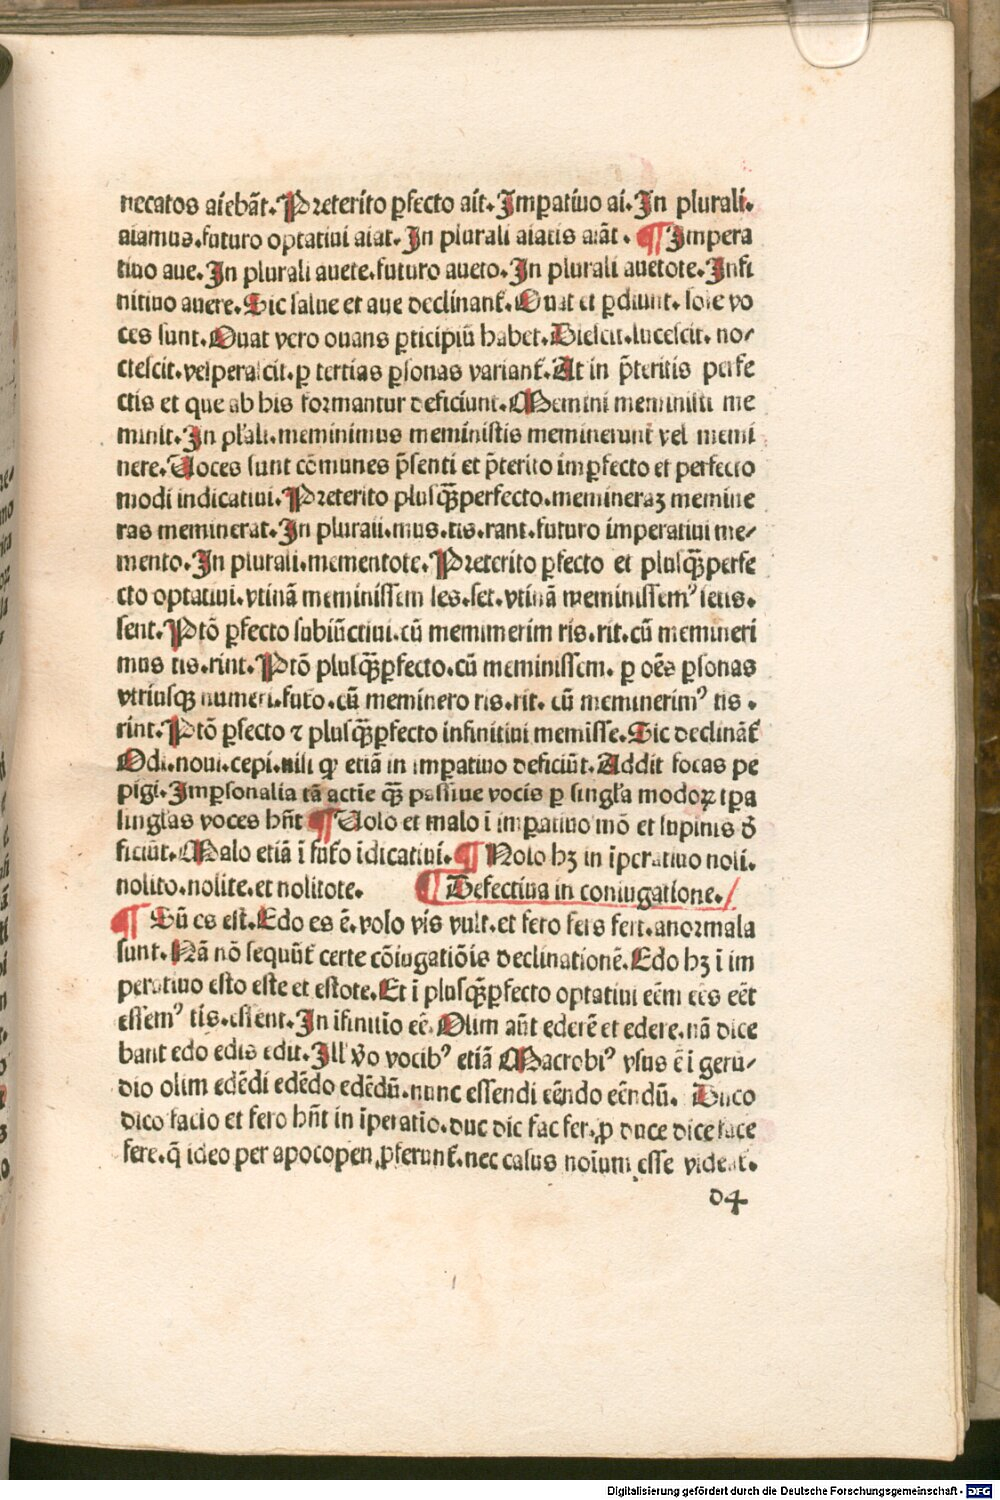 necatos aiebãt. Preterito ꝑfecto ait. Imꝑatiuo ai. In plurali.
aiamus. futuro optatiui aiat. In plurali aiatis aiãt. ¶ Impera
tiuo aue. In plurali auete. futuro aueto. In plurali auetote. Infi
nitiuo auere. Sic salue et aue declinant̃. Ouat et ꝑdiunt. sole vo
ces sunt. Ouat vero ouans ꝑticipiũ habet. Diescit. lucescit. no⸗
ctescit. vesperascit. ꝑ tertias ꝑsonas variant̃. At in p̃teritis perfe
ctis et que ab his formantur deficiunt. Memini meministi me
minit. In pl̃ali. meminimus meministis meminerunt vel memi
nere. Uoces sunt cõmunes p̃senti et p̃terito imꝑfecto et perfecto
modi indicatiui. Preterito plusq̃ꝫperfecto. memineraꝫ memine
ras meminerat. In plurali. mus. tis. rant. futuro imperatiui me⸗
mento. In plurali. mementote. Preterito ꝑfecto et plusq̃ꝫperfe
cto optatiui. vtinã meminissem ses. set. vtinã meminissemꝰ setis.
sent. Ptõ ꝑfecto subiũctiui. cũ meminerim ris. rit. cũ memineri
mus tis. rint. Ptõ plusq̃ꝫꝑfecto. cũ meminissem. ꝑ oẽs ꝑsonas
vtriusqꝫ numeri. futo. cũ meminero ris. rit. cũ meminerimꝰ tis.
rint. Ptõ ꝑfecto ⁊ plusq̃ꝫꝑfecto infinitiui memisse. Sic declinãt̃
Odi. noui. cepi. nisi qꝙ etiã in imꝑatiuo deficiũt. Addit focas pe
pigi. Imꝑsonalia tã actie q̃ꝫ passiue vocis ꝑ singl̃a modoꝝ tꝑa
singl̃as voces hñt ¶ Uolo et malo ĩ imꝑatiuo mõ et supinis d̃
ficiũt. Malo etiã ĩ futo ĩdicatiui. ¶ Nolo hꝫ in ĩperatiuo noli.
nolito. nolite. et nolitote. ¶ Defectiua in coniugatione.
¶ Sũ es est. Edo es ẽ. volo vis vult. et fero fers fert. anormala
sunt. Nã nõ sequũt̃ certe cõiugatiõis declinationẽ. Edo hꝫ ĩ im
peratiuo esto este et estote. Et ĩ plusq̃ꝫꝑfecto optatiui eẽm eẽs eẽt
essemꝰ tis. essent. In ĩfinitiuo eẽ. Olim aũt ederẽ et edere. nã dice
bant edo edis edit. Ill̃ v̊o vocibꝰ etiã Macrobiꝰ vsus ẽ ĩ geru⸗
dio olim edẽdi edẽdo edẽdũ. nunc essendi eẽndo eẽndũ. Duco
dico facio et fero hñt in ĩperatio. duc dic fac fer. ꝓ duce dice face
fere. q̃ ideo per apocopen ꝓferunt̃. nec casus noĩum esse videat̃.
d4